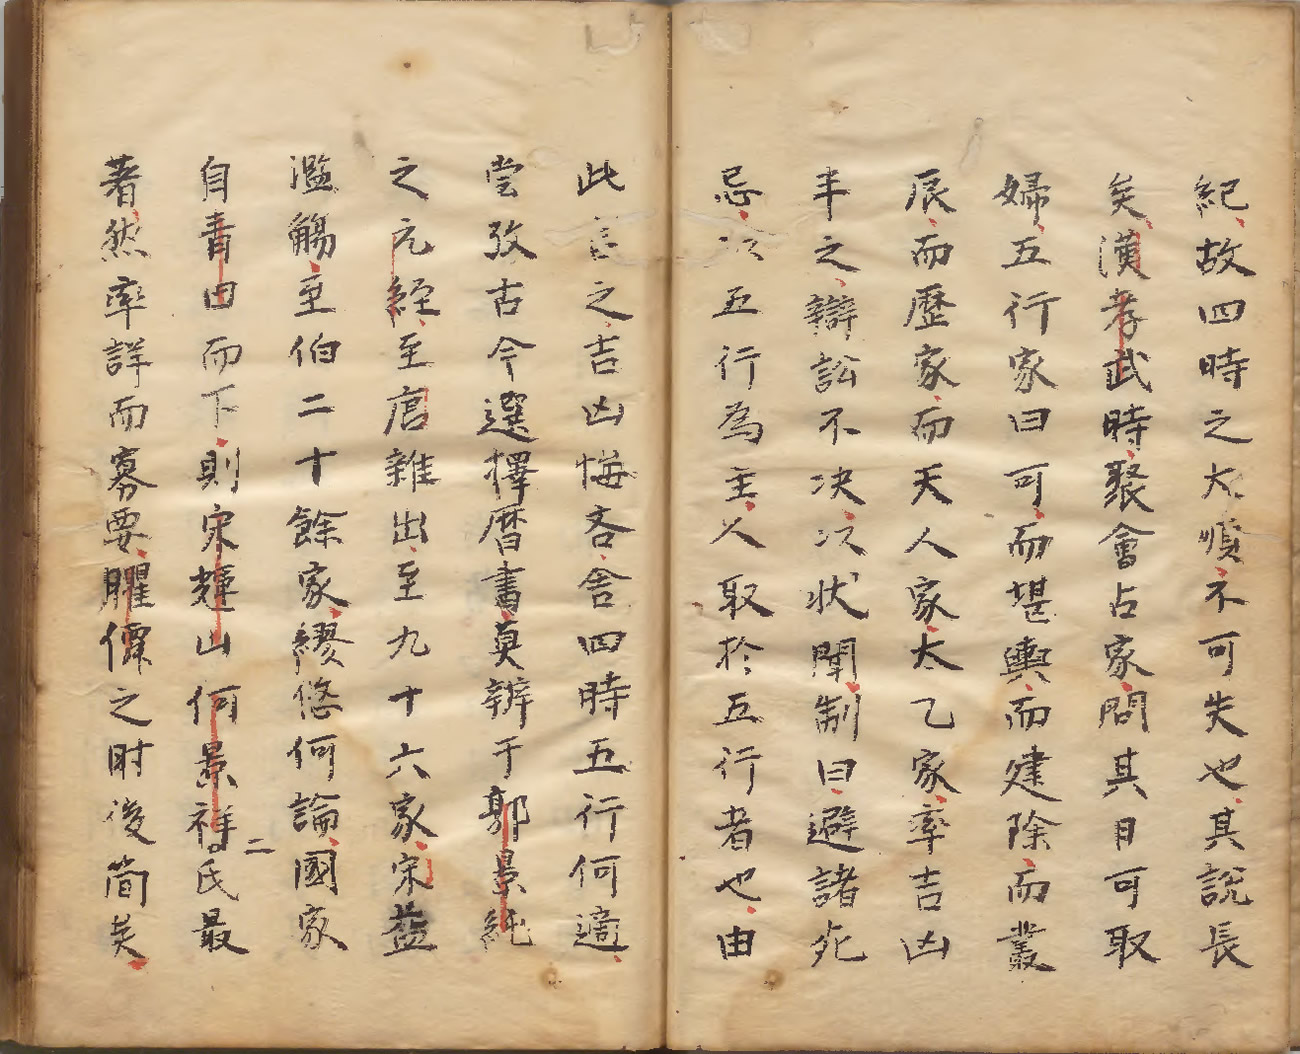 紀故四時之大順不可失也其說長
矣漢孝武時聚會占家問其日可取
婦五行家曰可而堪輿而建除而叢
辰而歷家而天人家太乙家率吉凶
半之辯訟不決以狀聞制曰避諸死
忌以五行為主人取於五行者也由
此言之吉凶悔吝舍四時五行何適
嘗攷古今選擇曆書莫辨于郭景純
之元經至唐雜出至九十六家宋益
濫觴至伯二十餘家繆悠何論國家
自青田而下則宋輝山何景祥二氏最
著然率詳而寡要臞僊之肘後簡矣